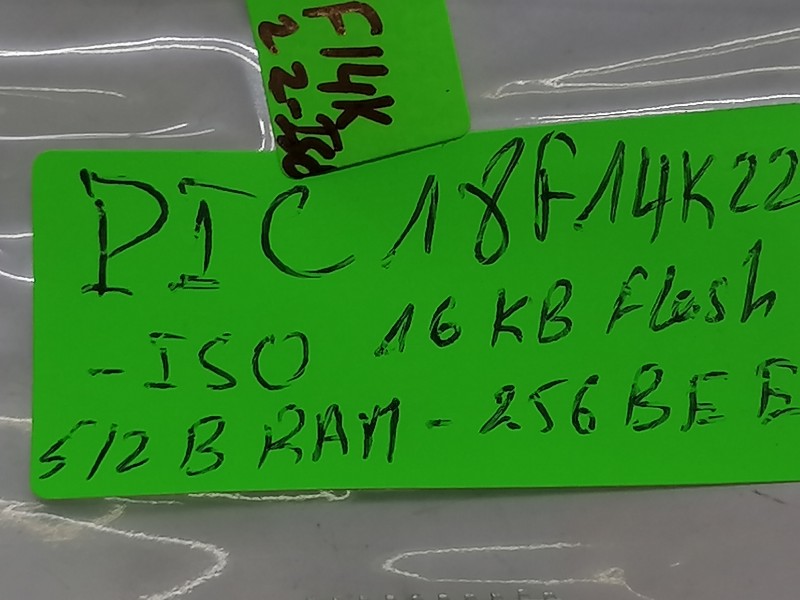 F14K
22-ISO
PIC 18F14K22
-ISO 16 KB Flash
512 B RAM - 256 B E E